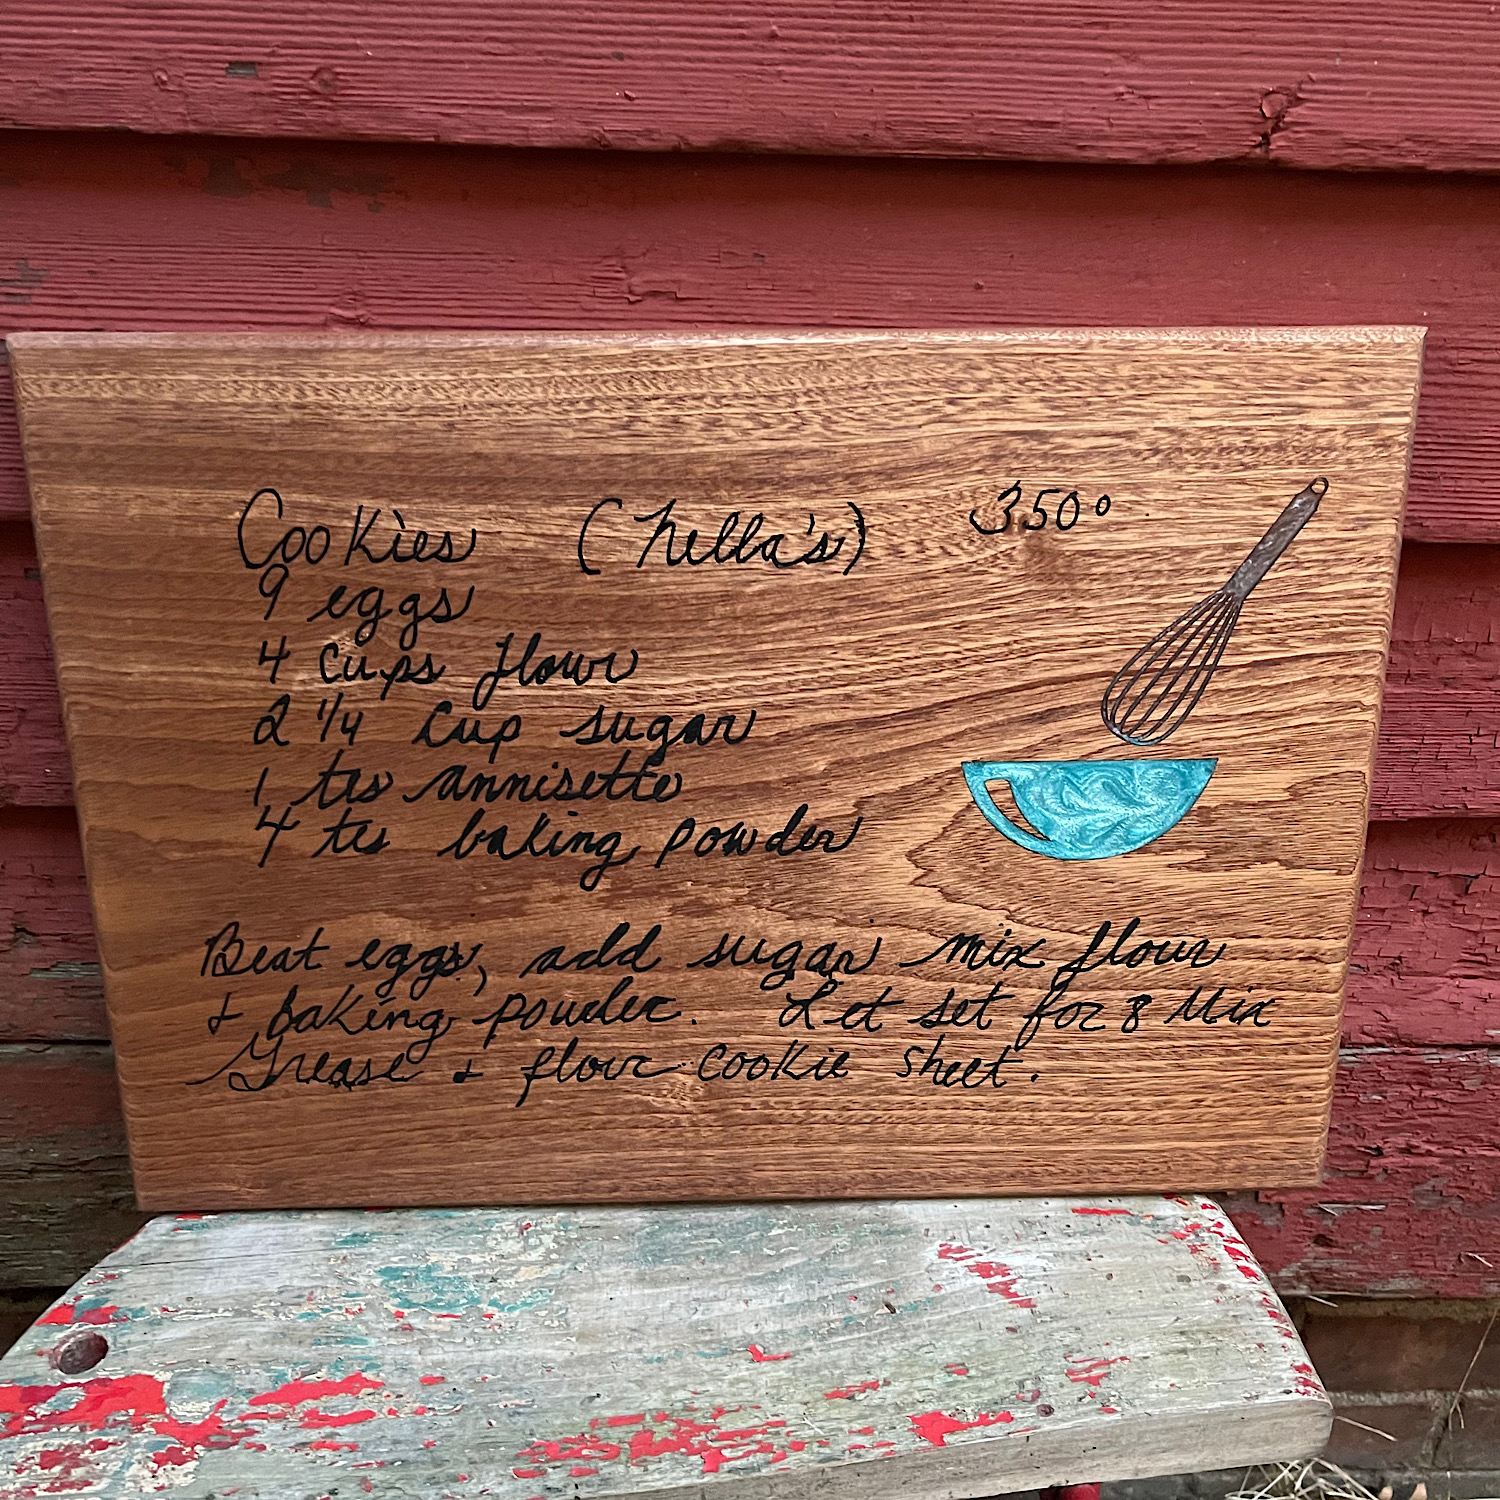 Cookies (Nella's) 350°
9 eggs
4 cups flour
2 1/4 cup sugar
1 tes annisette
4 tes baking powder
Beat eggs, add sugar mix flour
& baking powder. Let set for 8 Min
Grease & flour cookie sheet.